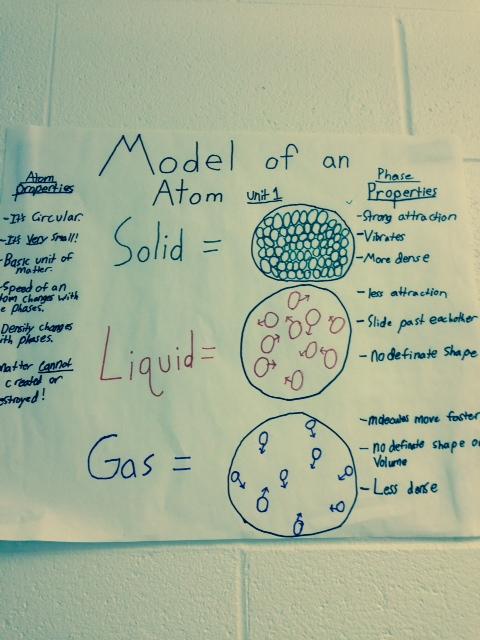 Model of an
Atom unit 1
Atom
properties
-It's Circular.
-It's Very Small!
-Basic unit of
matter.
-Speed of an
changes with
phases.
Density changes
phases.
matter cannot
created or
Solid =
Liquid =
Gas =
Phase
Properties
-Strong attraction
-Vibrates
-More dense
-less attraction
-Slide past eachother
-no definate shape
-molecules move faster
-no definate shape or
Volume
-Less dense